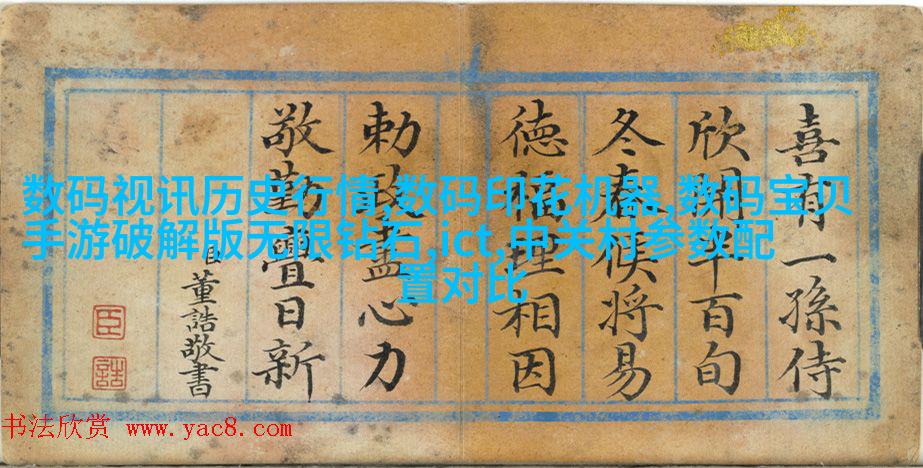 数码视讯历史行情,数码印花机器,数码宝贝
手游破解版无限钻石,ict,中关村参数配
置对比
喜有一孫侍
欣開百旬
冬春候將易
德福理相因
勅政盡心力
敬勤亹日新
臣董誥敬書
臣
誥
书法欣赏 www.yac8.com